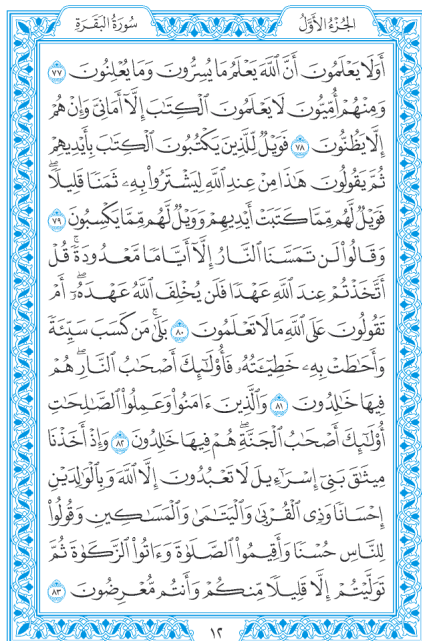 الجُزْءُ الأَوَّلُ
سُورَةُ البَقَرَةِ
أَوَلَا يَعْلَمُونَ أَنَّ ٱللَّهَ يَعْلَمُ مَا يُسِرُّونَ وَمَا يُعْلِنُونَ ٧٧
وَمِنْهُمْ أُمِّيُّونَ لَا يَعْلَمُونَ ٱلْكِتَٰبَ إِلَّآ أَمَانِيَّ وَإِنْ هُمْ
إِلَّا يَظُنُّونَ ٧٨ فَوَيْلٌ لِّلَّذِينَ يَكْتُبُونَ ٱلْكِتَٰبَ بِأَيْدِيهِمْ
ثُمَّ يَقُولُونَ هَٰذَا مِنْ عِندِ ٱللَّهِ لِيَشْتَرُوا۟ بِهِۦ ثَمَنًا قَلِيلًا ۖ
فَوَيْلٌ لَّهُم مِّمَّا كَتَبَتْ أَيْدِيهِمْ وَوَيْلٌ لَّهُم مِّمَّا يَكْسِبُونَ ٧٩
وَقَالُوا۟ لَن تَمَسَّنَا ٱلنَّارُ إِلَّآ أَيَّامًا مَّعْدُودَةً ۚ قُلْ
أَتَّخَذْتُمْ عِندَ ٱللَّهِ عَهْدًا فَلَن يُخْلِفَ ٱللَّهُ عَهْدَهُۥٓ ۖ أَمْ
تَقُولُونَ عَلَى ٱللَّهِ مَا لَا تَعْلَمُونَ ٨٠ بَلَىٰ مَن كَسَبَ سَيِّئَةً
وَأَحَٰطَتْ بِهِۦ خَطِيٓـَٔتُهُۥ فَأُو۟لَٰٓئِكَ أَصْحَٰبُ ٱلنَّارِ ۖ هُمْ
فِيهَا خَٰلِدُونَ ٨١ وَٱلَّذِينَ ءَامَنُوا۟ وَعَمِلُوا۟ ٱلصَّٰلِحَٰتِ
أُو۟لَٰٓئِكَ أَصْحَٰبُ ٱلْجَنَّةِ ۖ هُمْ فِيهَا خَٰلِدُونَ ٨٢ وَإِذْ أَخَذْنَا
مِيثَٰقَ بَنِىٓ إِسْرَٰٓءِيلَ لَا تَعْبُدُونَ إِلَّا ٱللَّهَ وَبِٱلْوَٰلِدَيْنِ
إِحْسَانًا وَذِى ٱلْقُرْبَىٰ وَٱلْيَتَٰمَىٰ وَٱلْمَسَٰكِينِ وَقُولُوا۟
لِلنَّاسِ حُسْنًا وَأَقِيمُوا۟ ٱلصَّلَوٰةَ وَءَاتُوا۟ ٱلزَّكَوٰةَ ثُمَّ
تَوَلَّيْتُمْ إِلَّا قَلِيلًا مِّنكُمْ وَأَنتُم مُّعْرِضُونَ ٨٣
١٢